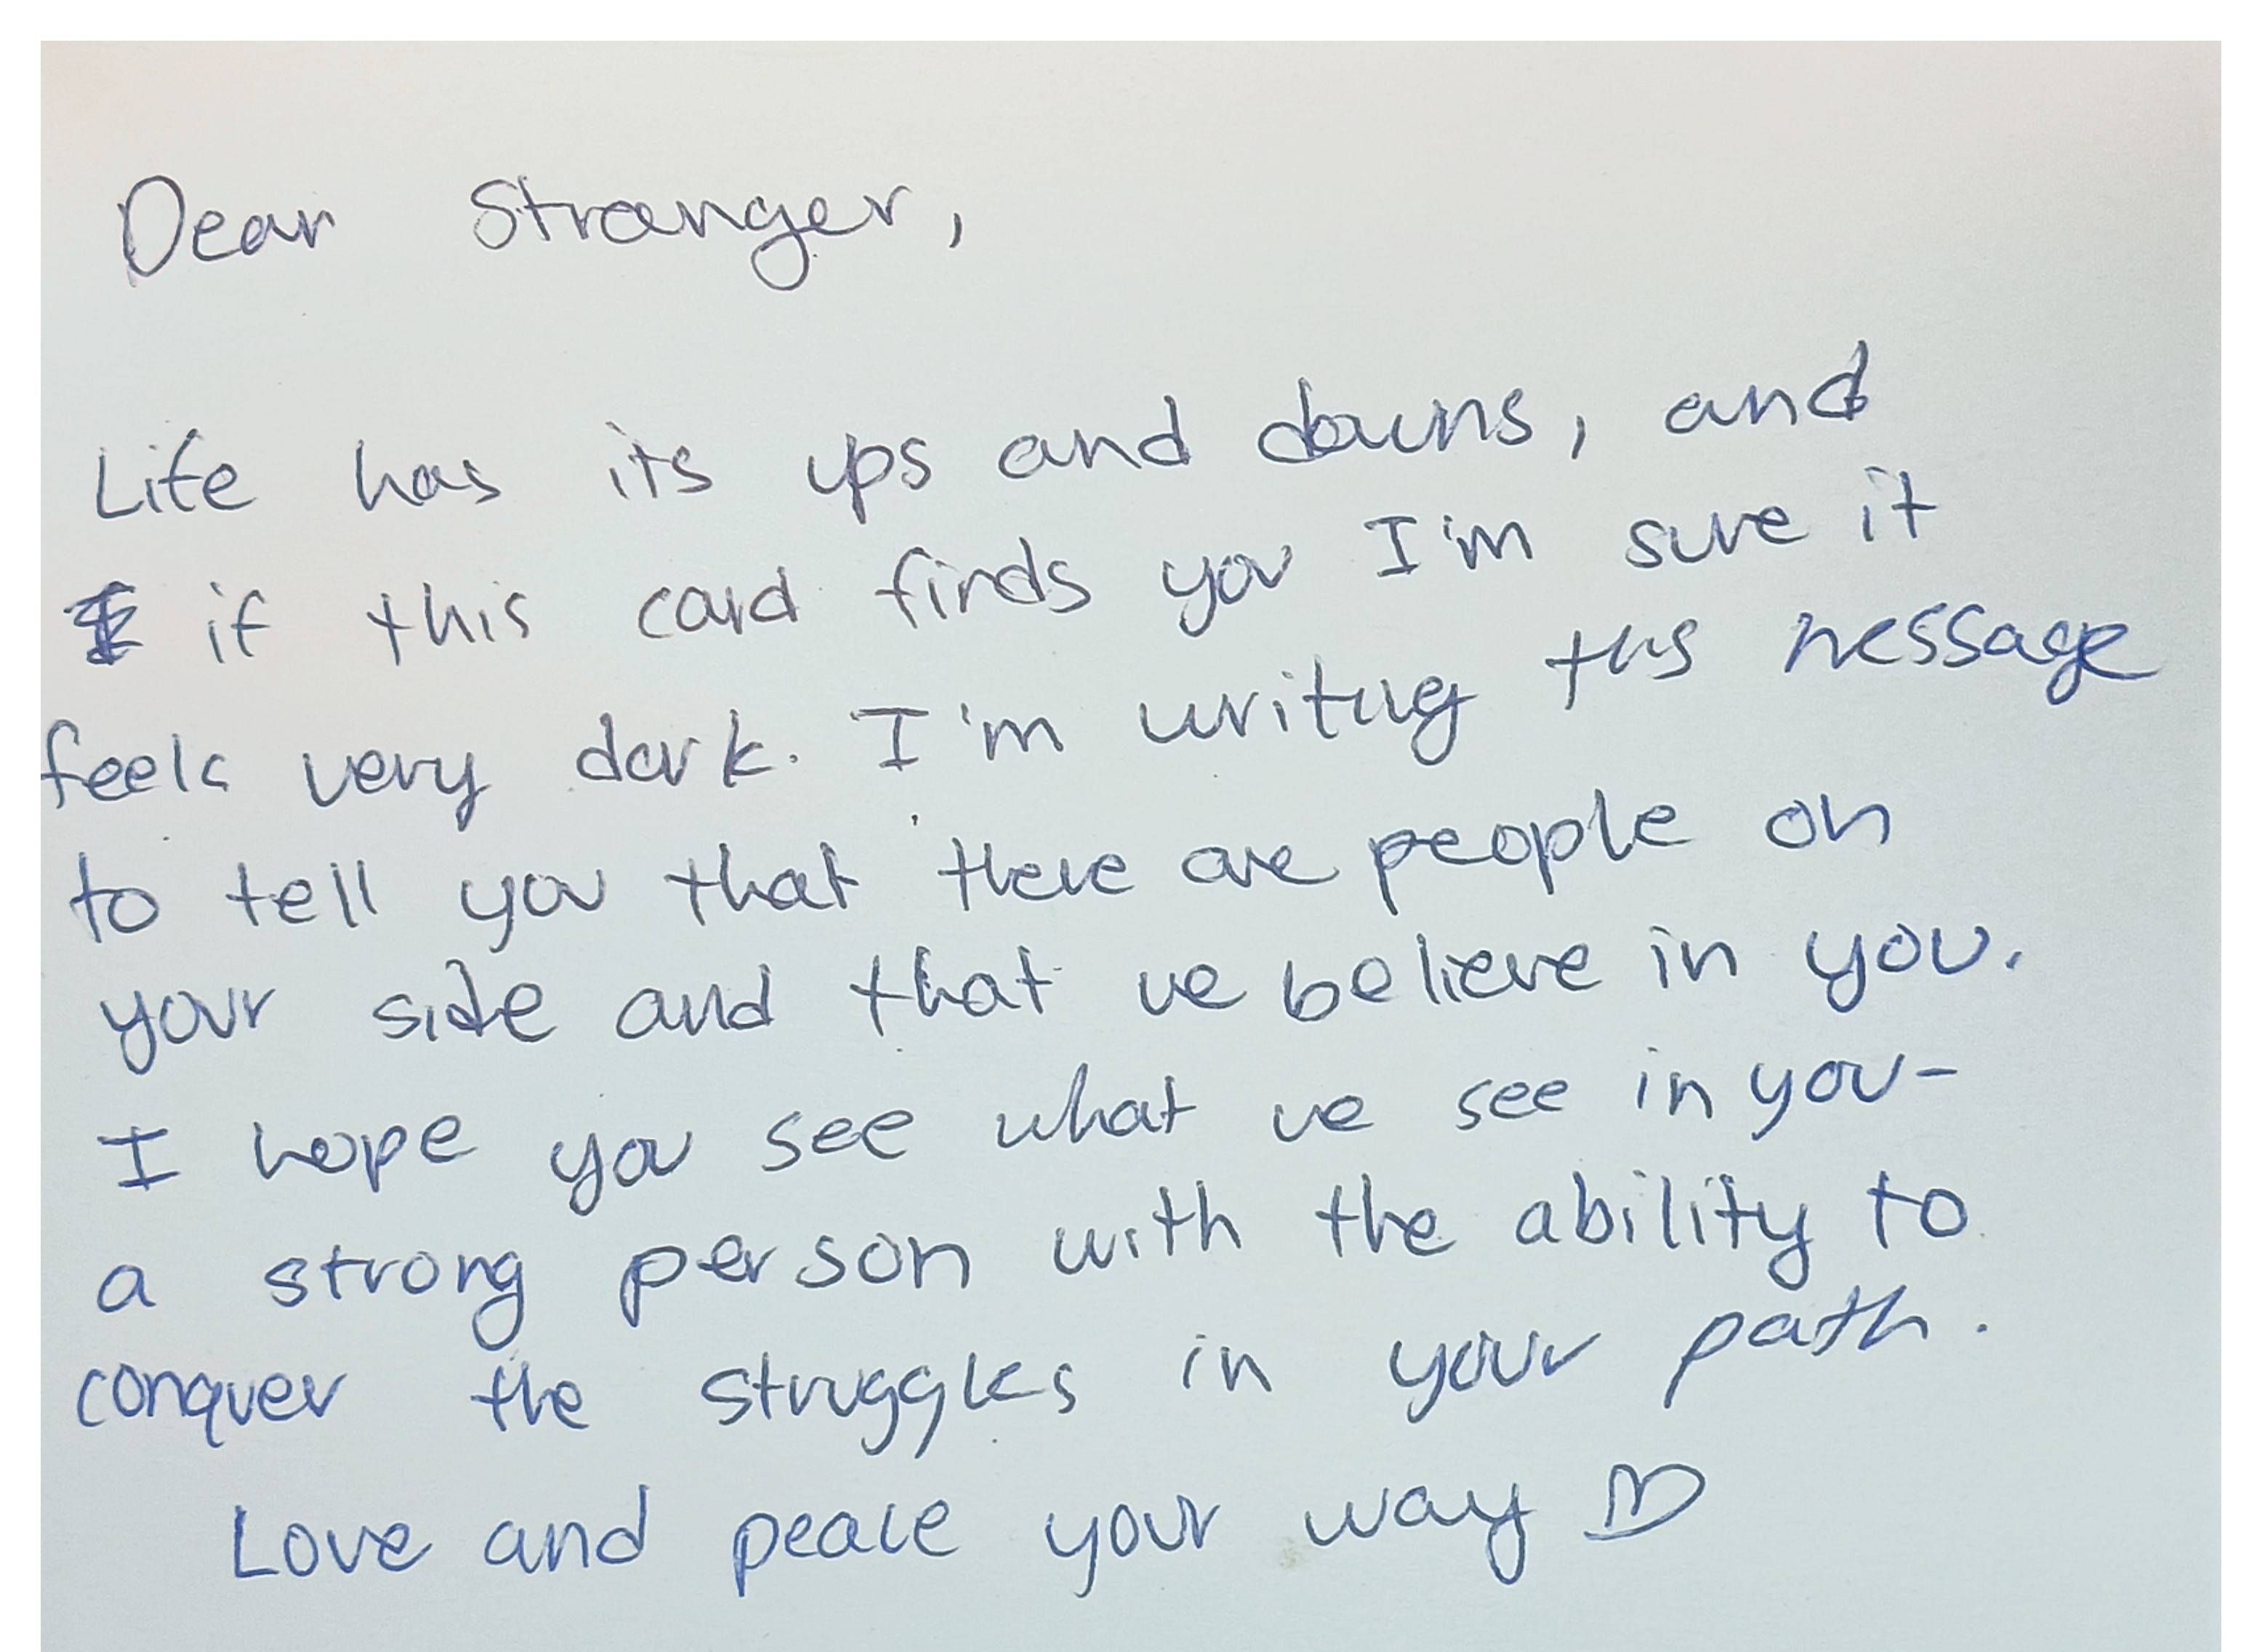 Dear Stranger,
Life has its ups and downs, and
if this card finds you I'm sure it
feels very dark. I'm writing this message
to tell you that there are people on
your side and that we believe in you.
I hope you see what we see in you-
a strong person with the ability to
conquer the struggles in your path.
Love and peace your way ♡